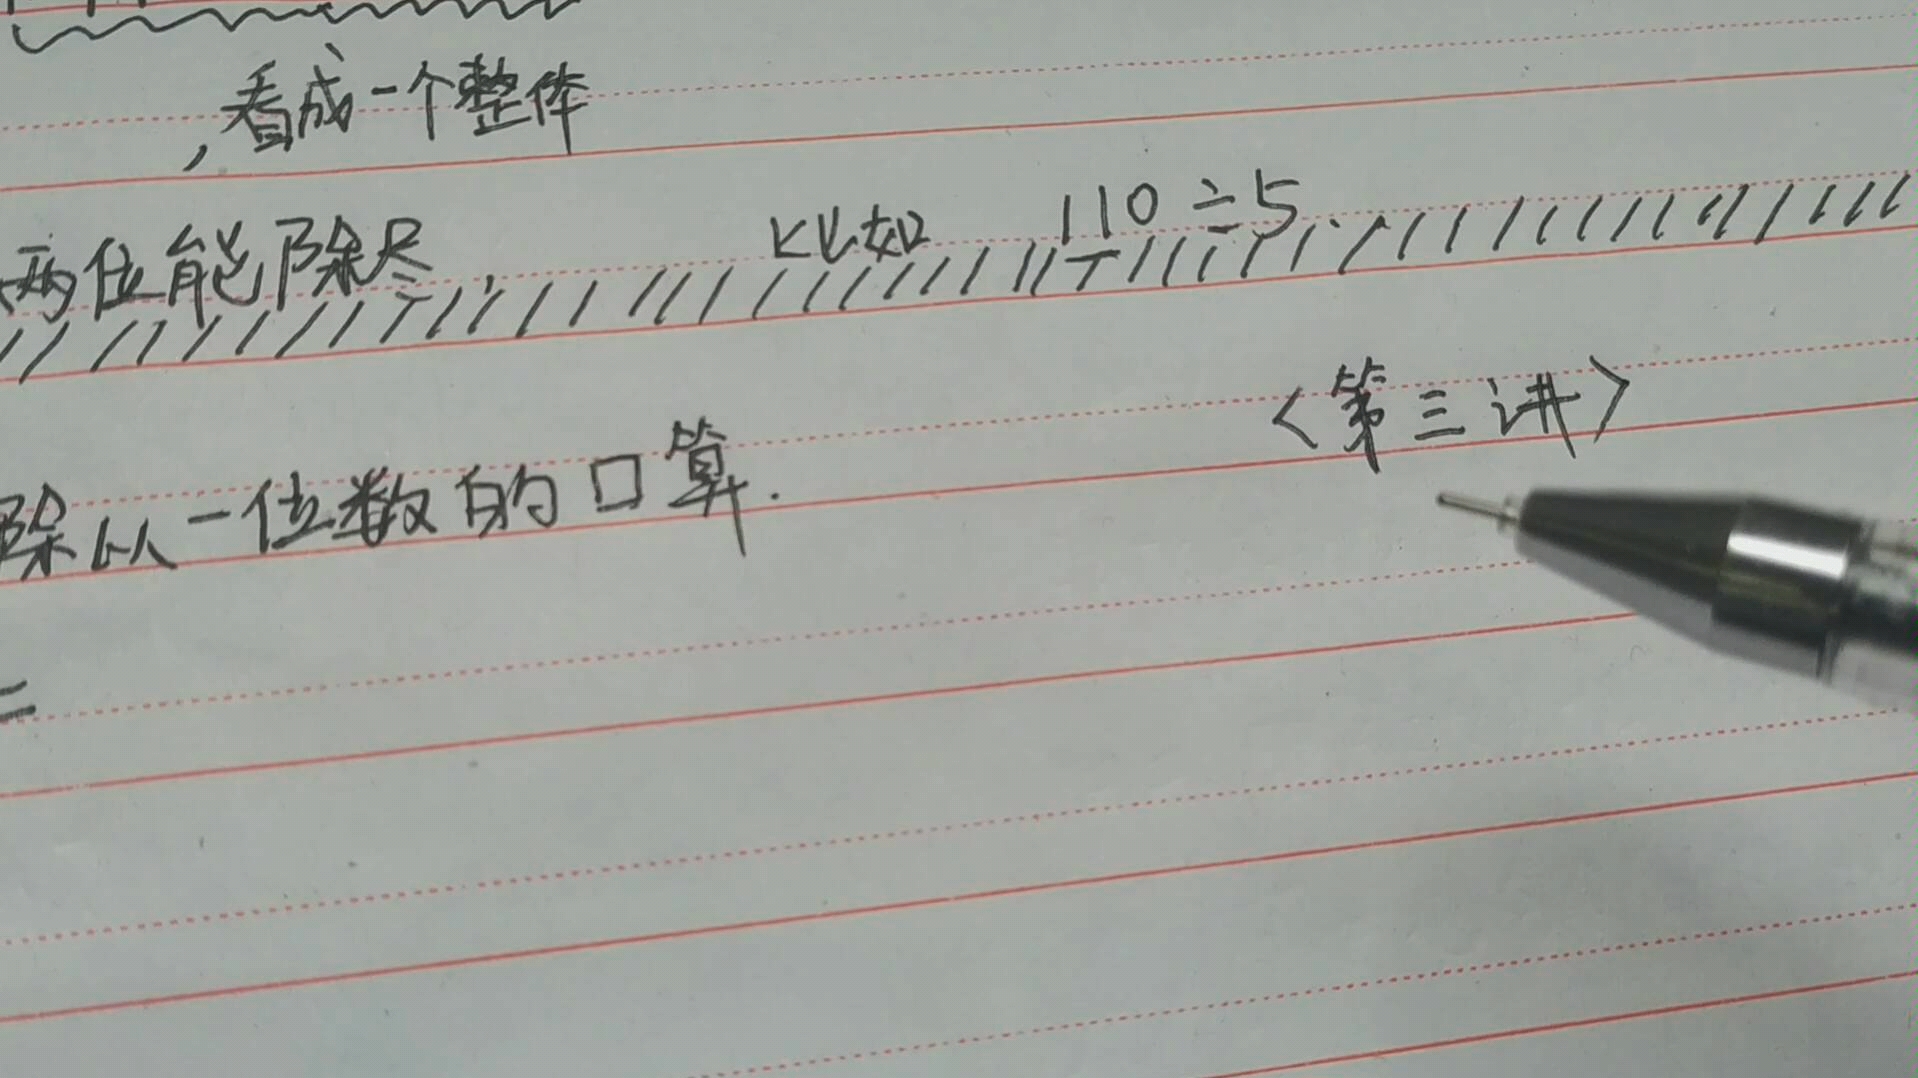 ，看成一个整体
两位能除尽， 比如 110÷5
〈第三讲〉
除以一位数的口算.
=